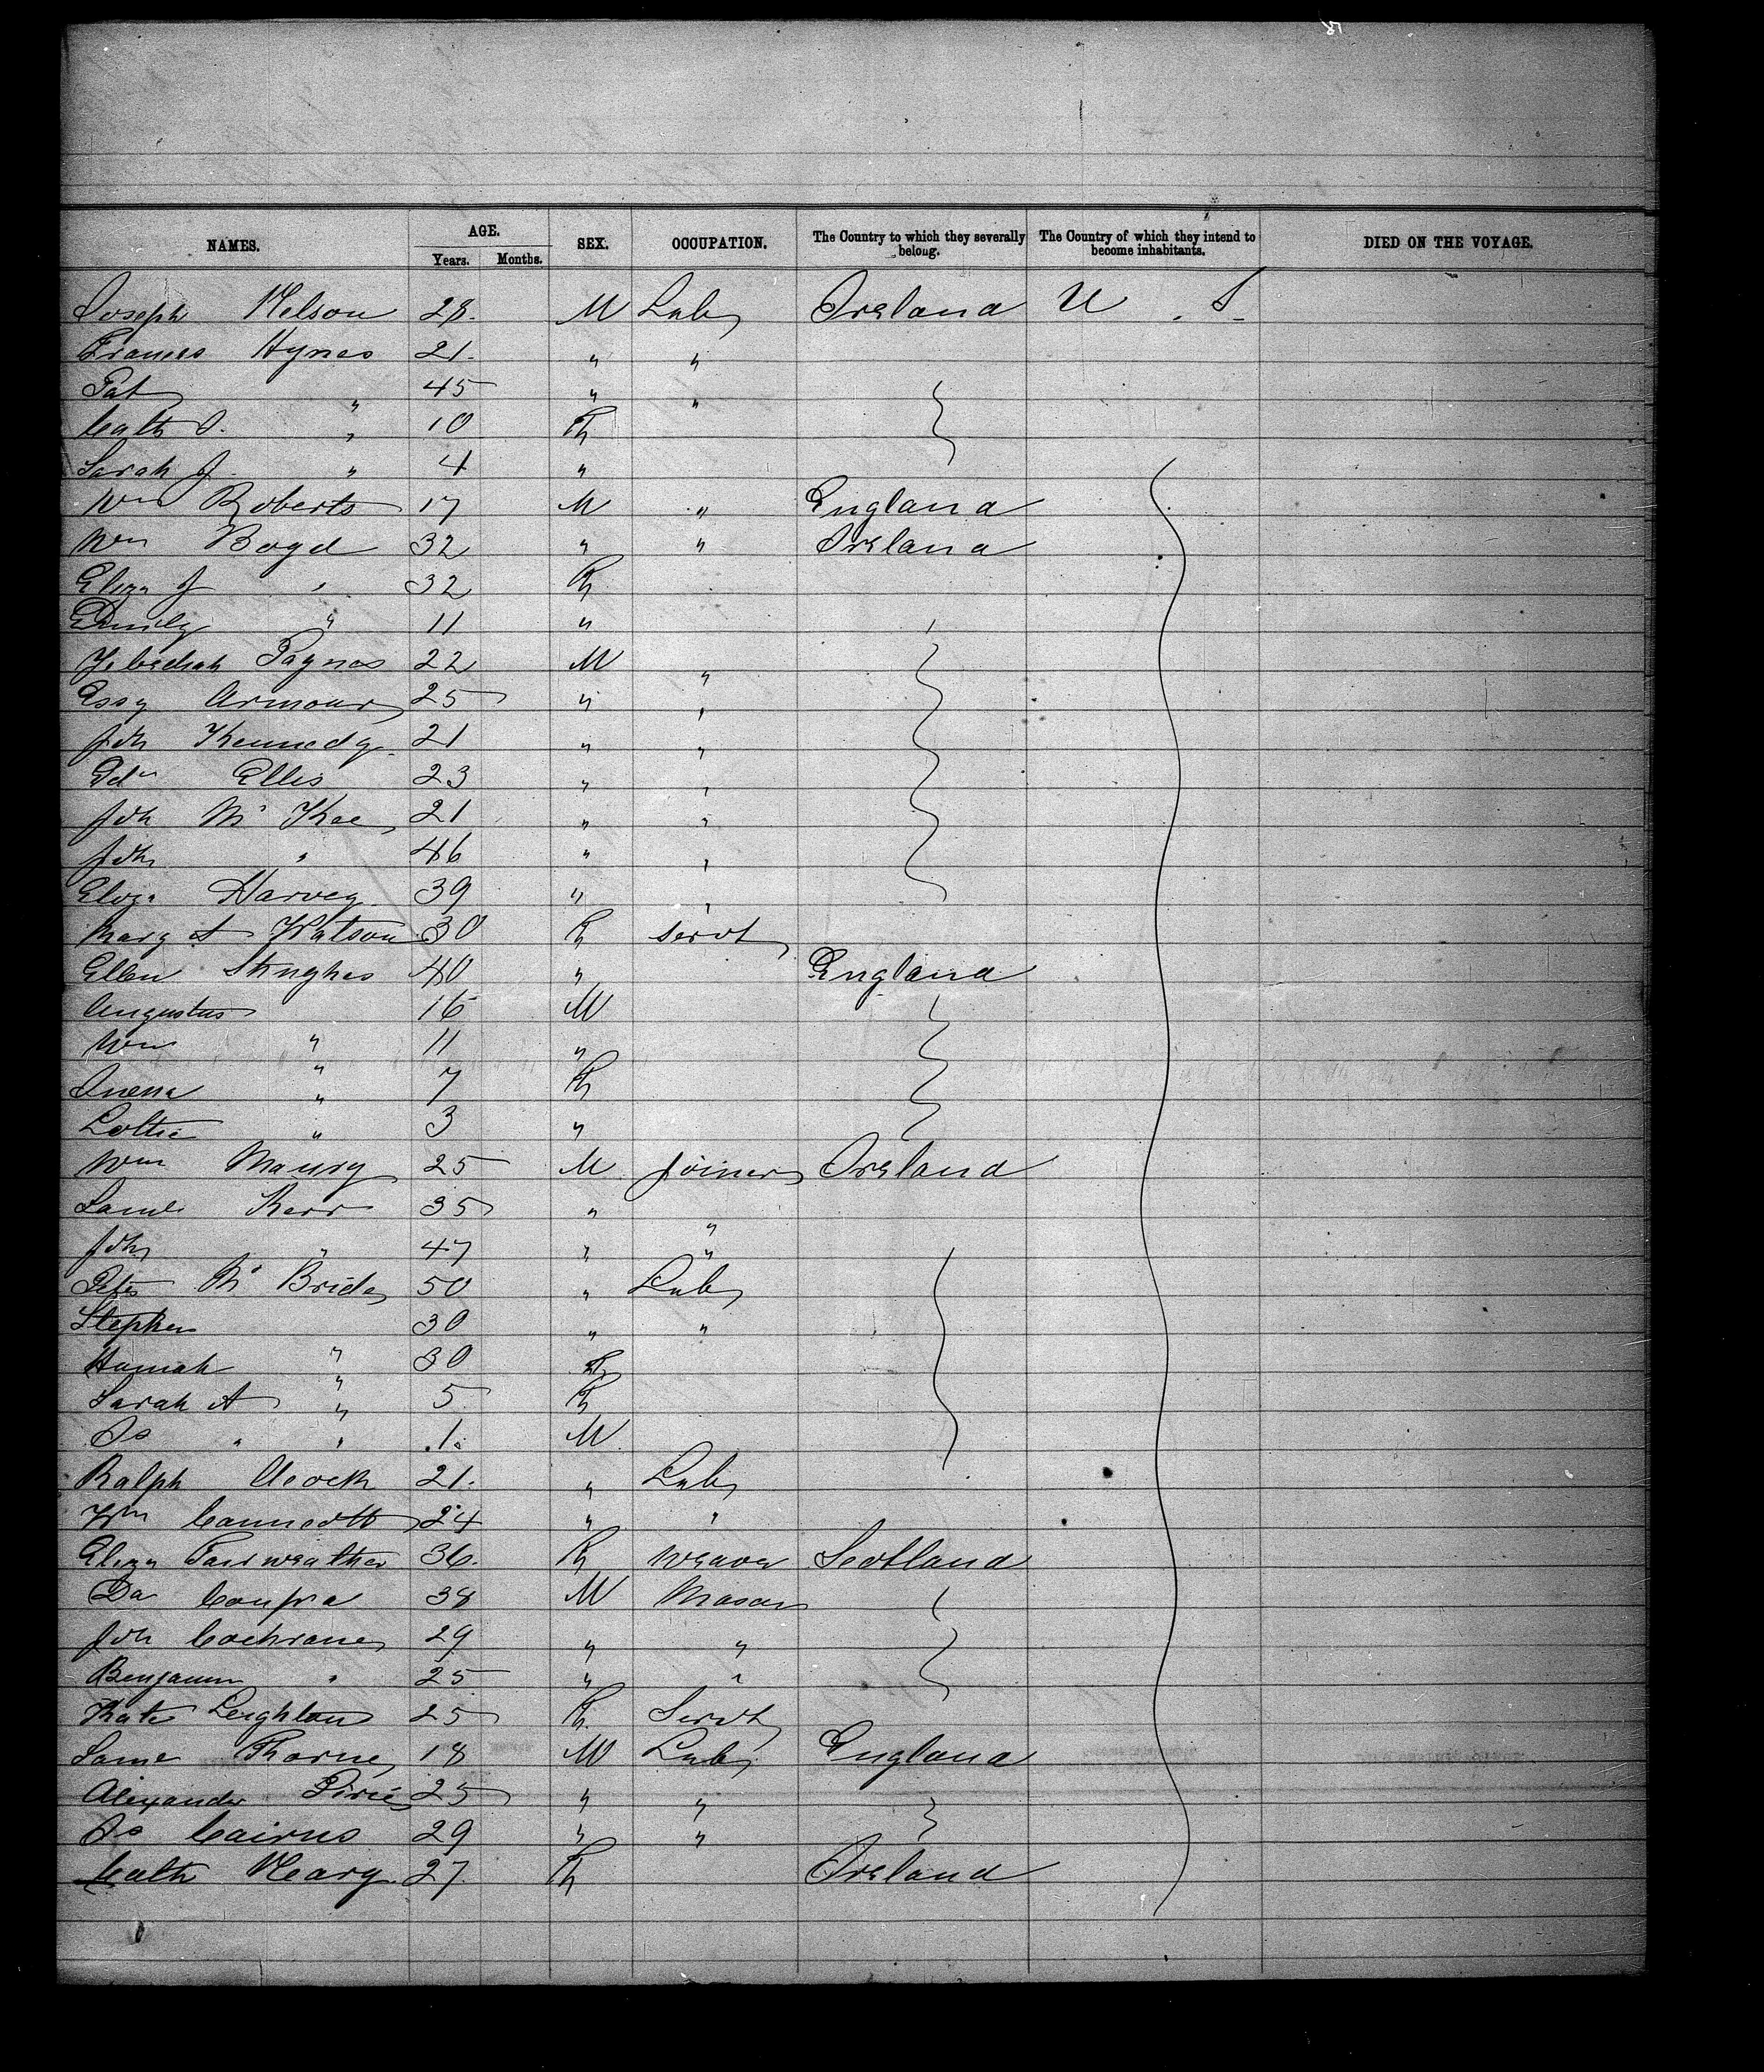 NAMES. AGE. Years. Months. SEX. OCCUPATION. The Country to which they severally belong. The Country of which they intend to become inhabitants. DIED ON THE VOYAGE.
Joseph Nelson 28. M Lab Ireland U . S
Frances Hynes 21. " "
Pat " 45 " "
Cath J. " 10 F
Sarah J " 4 "
Wm Roberts 17 M " England
Wm Boyd 32 " " Ireland
Eliza J " 32 F
Emily " 11 "
22 M "
Armour 25 " "
Joh Kennedy 21 " "
Edw Ellis 23 " "
Joh Mc Kee 21 " "
Joh " 46 " "
Eliza Harvey 39 " "
Marg A Watson 30 F Servt
Ellen 40 " England
Augustus 16 M
Wm " 11 "
" 7 F
Lottie " 3 "
Wm 25 M Joiner Ireland
Saml Kerr 35 " "
Joh " 47 " "
Peter Mc Bride 50 " Lab
Stephen " 30 " "
Hannah " 30 F
Sarah A " 5 F
Js " " 1. M
Ralph 21. " Lab
Wm 24 " "
Eliza Fairweather 36. F Weaver Scotland
Da 38 M Mason
Joh Cochrane 29 " "
Benjamin " 25 " "
Kate Leighton 25 F Servt
Thorne 18 M Lab England
Alexander Pirie 25 " "
Js Cairns 29 " "
Cath Neary 27. F Ireland